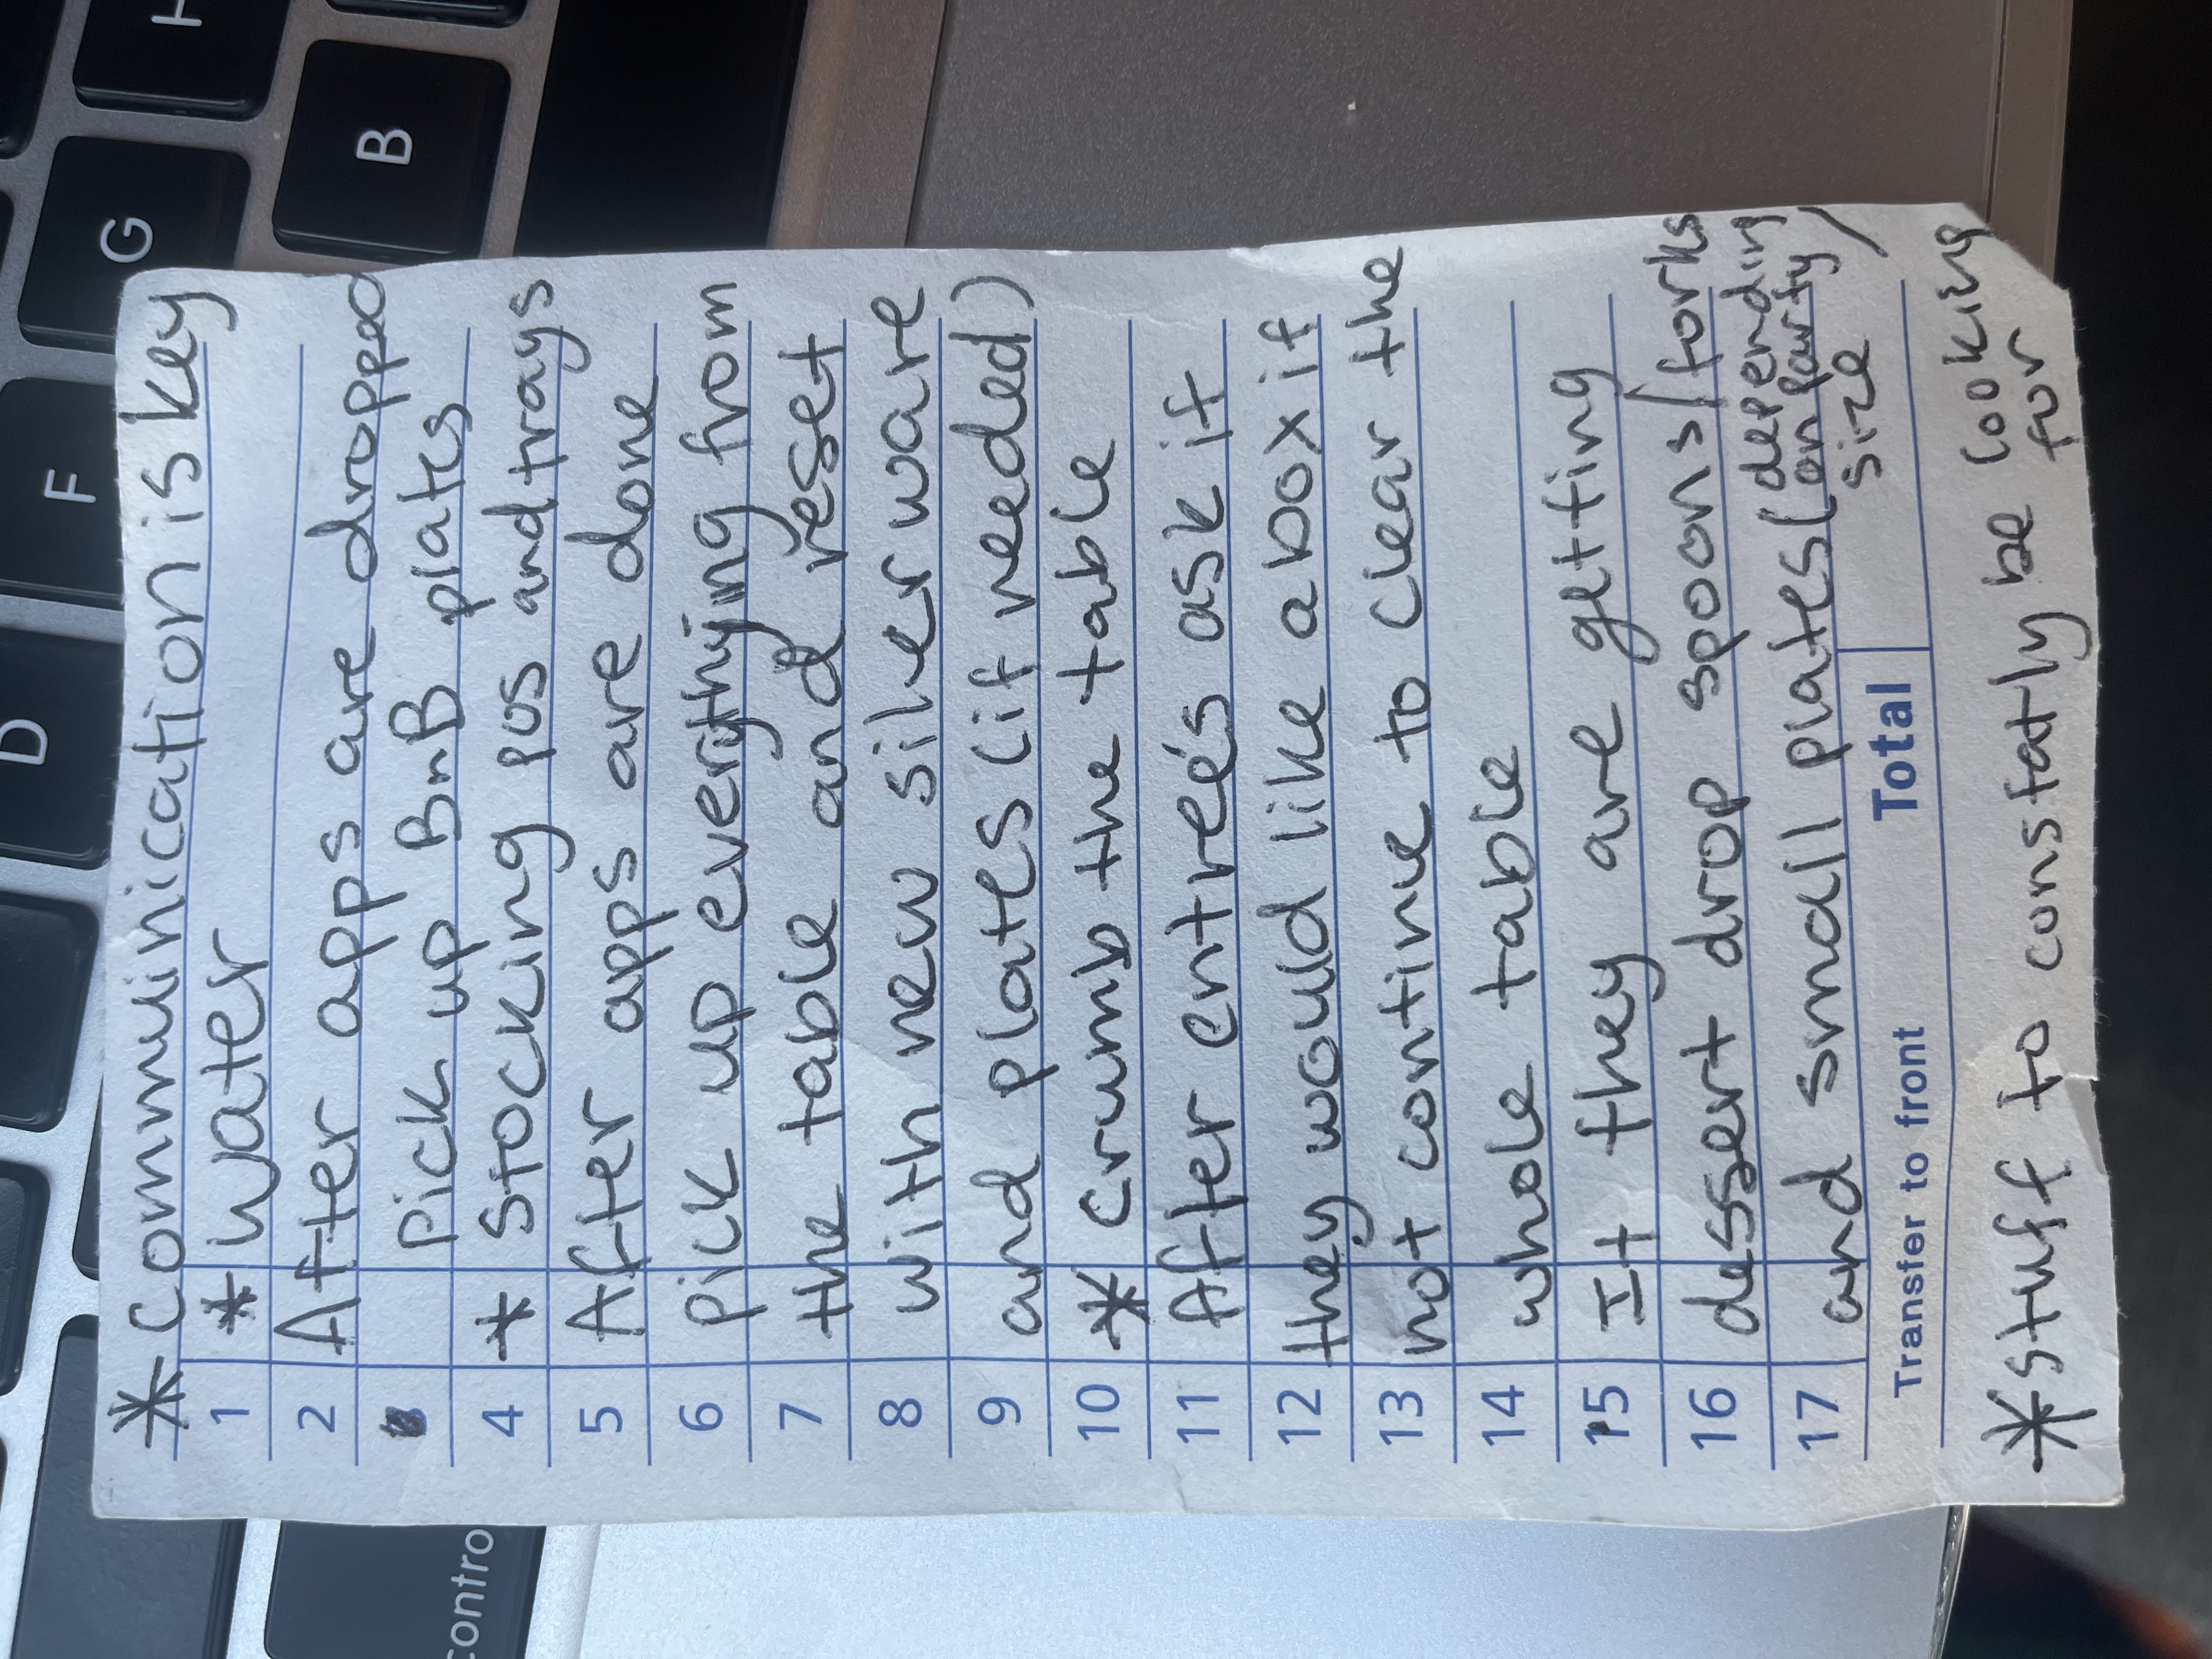 D
F
G
H
B
contro
* commuinication is key
1 * water
2 After apps are dropped
3 pick up BnB plates
4 * Stocking pos and trays
5 After apps are done
6 pick up everything from
7 the table and reset
8 with new silverware
9 and plates (if needed)
10 * crumb the table
11 After entree's ask if
12 they would like a box if
13 not continue to clear the
14 whole table
15 If they are getting
16 dessert drop spoons/forks
17 and small plates (depending
on party
size)
Transfer to front Total
* stuff to constatly be looking
for